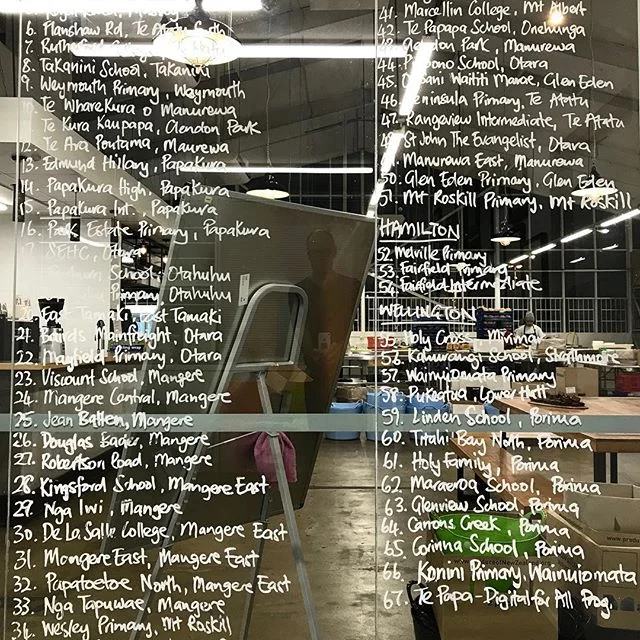 6. Flanshaw Rd, Te Atatu South
7. Rutherford
8. Takanini School, Takanini
9. Weymouth Primary, Weymouth
Te Wharekura o Manurewa
Te Kura Kaupapa, Clendon Park
12. Te Ara Poutama, Maurewa
13. Edmund Hillary, Papakura
14. Papakura High, Papakura
15. Papakura Int., Papakura
16. Park Estate Primary, Papakura
17. SEHC, Otara
School, Otahuhu
Primary, Otahuhu
20. East Tamaki, East Tamaki
21. Bairds Mainfreight, Otara
22. Mayfield Primary, Otara
23. Viscount School, Mangere
24. Mangere Central, Mangere
25. Jean Batten, Mangere
26. Douglas Bader, Mangere
27. Robertson Road, Mangere
28. Kingsford School, Mangere East
29. Nga Iwi, Mangere
30. De La Salle College, Mangere East
31. Mangere East, Mangere East
32. Papatoetoe North, Mangere East
33. Nga Tapuwae, Mangere
34. Wesley Primary, Mt Roskill
41. Marcellin College, Mt Albert
42. Te Papapa School, Onehunga
43. Clendon Park, Manurewa
44. School, Otara
45. Hoani Waititi Marae, Glen Eden
46. Peninsula Primary, Te Atatu
47. Rangeview Intermediate, Te Atatu
48. St John The Evangelist, Otara
49. Manurewa East, Manurewa
50. Glen Eden Primary, Glen Eden
51. Mt Roskill Primary, Mt Roskill
HAMILTON
52. Melville Primary
53. Fairfield Primary
54. Fairfield Intermediate
WELLINGTON
55. Holy Cross, Miramar
56. Kahurangi School, Strathmore
57. Wainuiomata Primary
58. Pukeatua, Lower Hutt
59. Linden School, Porirua
60. Titahi Bay North, Porirua
61. Holy Family, Porirua
62. Maraeroa School, Porirua
63. Glenview School, Porirua
64. Cannons Creek, Porirua
65. Corinna School, Porirua
66. Konini Primary, Wainuiomata
67. Te Papa - Digital for All Prog.